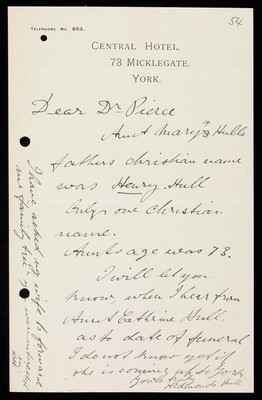 54
TELEPHONE No. 663.
CENTRAL HOTEL,
73 MICKLEGATE,
YORK.
Dear Dr Pierce
Aunt Mary's Hulls
fathers christian name
was Henry Hull
Only one christian
name.
Aunts age was 78.
I will let you
know when I hear from
Aunt Cathrine Hull,
as to date of funeral
I do not know yet if
she is coming up to York.
Yours truly
Hull
I have asked my wife to forward
our family tree